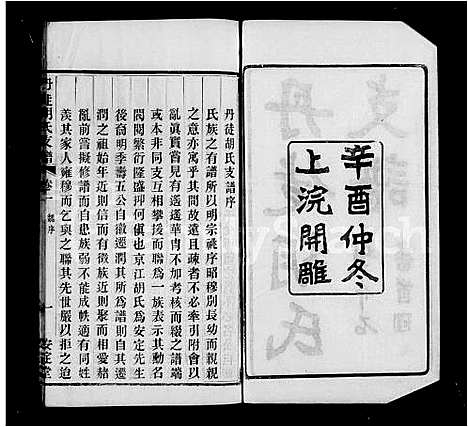 辛酉仲冬
上浣開雕
丹徒胡氏支譜序
氏族之有譜所以明宗祧序昭穆別長幼而親親
之意亦寓乎其間故遠且疎者不必牽引附會以
亂眞實嘗見有遙遙華胄不加考核而綴之譜端
或本非同支互相攀援而聯爲一族表示其動名
閥閱繁衍隆盛抑何傎也京江胡氏爲安定先生
後裔明季壽五公自徽遷潤其所爲譜則自其遷
潤者祖始年近則信而有徵族近則聚而相愛赭
亂前嘗擬修譜而自患族弱不能成帙適有同姓
羨其家人雍穆而乞與之聯其先世嚴以拒之迨
丹徒胡氏支譜
卷一
譜序
一
安定堂